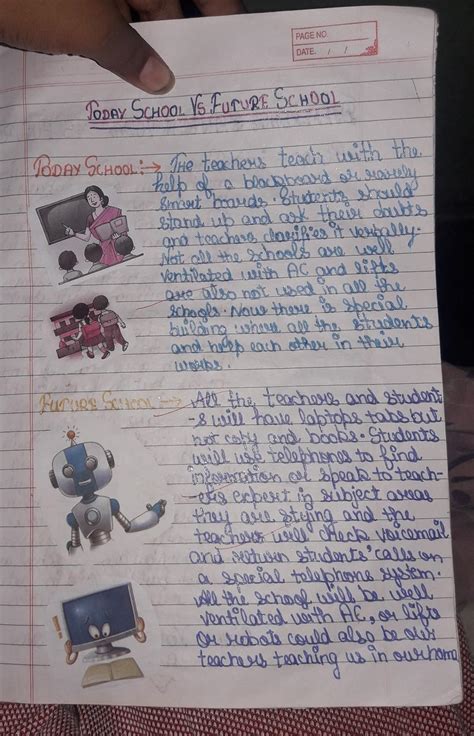 PAGE NO.
DATE. / /
TODAY SCHOOL VS. FUTURE SCHOOL
TODAY SCHOOL:→ The teachers teach with the
help of a blackboard or rarely
smart boards. Students should
stand up and ask their doubts
and teachers clarifies it verbally.
Not all the schools are well
ventilated with AC and lifts
are also not used in all the
schools. Now there is special
building where all the students
and help each other in their
works.
FUTURE SCHOOL:→ All the teachers and student
-s will have laptops tabs but
not copy and books. Students
will use telephones to find
information or speak to teach-
-ers expert in subject areas
they are stying and the
teachers will check voicemail
and return students' calls on
a special telephone system.
All the school will be well
ventilated with AC, or lifts
or robots could also be our
teachers teaching us in our home